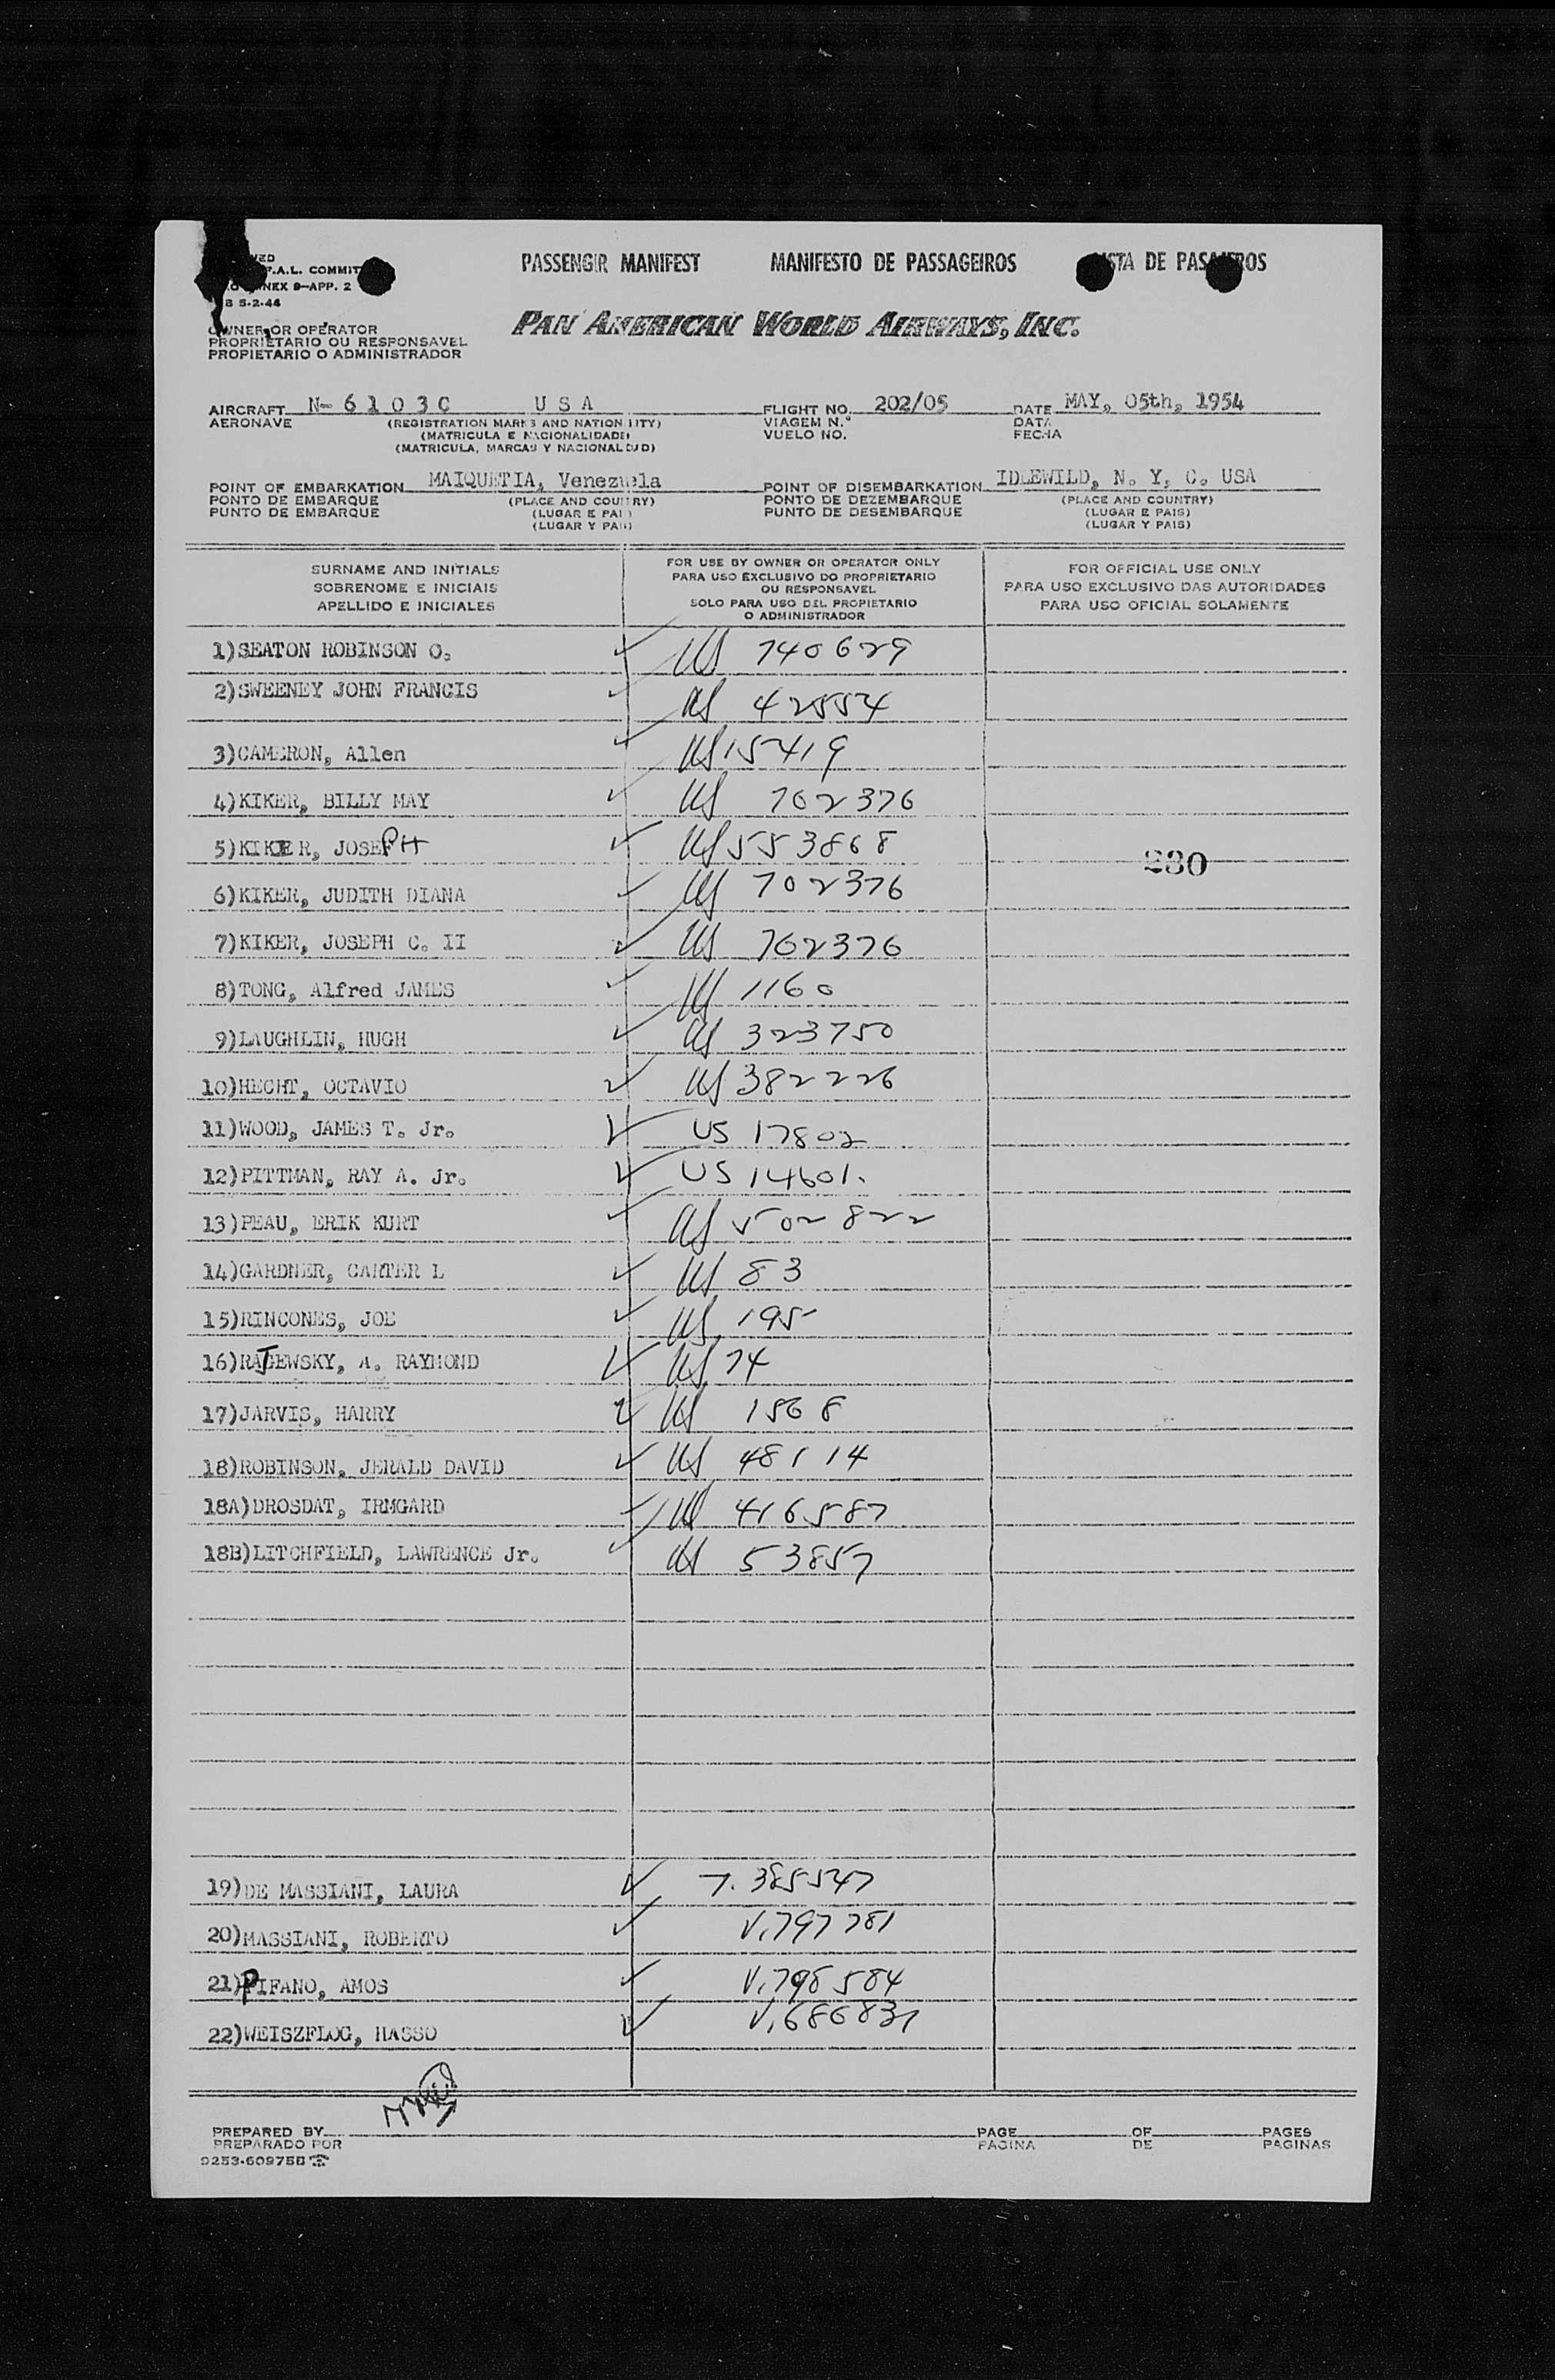 PASSENGER MANIFEST MANIFESTO DE PASSAGEIROS DE
F.A.L.
ANNEX 9—APP. 2
5-2-44
OWNER OR OPERATOR
PROPRIETARIO OU RESPONSAVEL
PROPIETARIO O ADMINISTRADOR
PAN AMERICAN WORLD AIRWAYS, INC.
AIRCRAFT N- 6 1 0 3 C U S A FLIGHT NO. 202/05 DATE MAY, 05th, 1954
AERONAVE (REGISTRATION MARKS AND NATIONALITY) VIAGEM N.º DATA
(MATRICULA E NACIONALIDADE) VUELO NO. FECHA
(MATRICULA, MARCAS Y NACIONALIDAD)
POINT OF EMBARKATION MAIQUETIA, Venezuela POINT OF DISEMBARKATION IDLEWILD, N. Y. C. USA
PONTO DE EMBARQUE (PLACE AND COUNTRY) PONTO DE DEZEMBARQUE (PLACE AND COUNTRY)
PUNTO DE EMBARQUE (LUGAR E PAIS) PUNTO DE DESEMBARQUE (LUGAR E PAIS)
(LUGAR Y PAIS) (LUGAR Y PAIS)
SURNAME AND INITIALS
SOBRENOME E INICIAIS
APELLIDO E INICIALES
FOR USE BY OWNER OR OPERATOR ONLY
PARA USO EXCLUSIVO DO PROPRIETARIO
OU RESPONSAVEL
SOLO PARA USO DEL PROPIETARIO
O ADMINISTRADOR
FOR OFFICIAL USE ONLY
PARA USO EXCLUSIVO DAS AUTORIDADES
PARA USO OFICIAL SOLAMENTE
1) SEATON ROBINSON O. US 740629
2) SWEENEY JOHN FRANCIS US 42554
3) CAMERON, Allen US 15419
4) KIKER, BILLY MAY US 702376
5) KIKER, JOSEPH US 553868
230
6) KIKER, JUDITH DIANA US 702376
7) KIKER, JOSEPH C. II US 702376
8) TONG, Alfred JAMES US 1160
9) LAUGHLIN, HUGH US 323750
10) HECHT, OCTAVIO US 382226
11) WOOD, JAMES T. Jr. US 17802
12) PITTMAN, RAY A. Jr. US 14601.
13) PEAU, ERIK KURT US 502822
14) GARDNER, CARTER L US 83
15) RINCONES, JOE US 195
16) RAJEWSKY, A. RAYMOND US 74
17) JARVIS, HARRY US 1568
18) ROBINSON, JERALD DAVID US 48114
18A) DROSDAT, IRMGARD US 416587
18B) LITCHFIELD, LAWRENCE Jr. US 53857
19) DE MASSIANI, LAURA T. 385547
20) MASSIANI, ROBERTO V. 797781
21) PIFANO, AMOS V. 798584
22) WEISZFLOG, HASSO V. 686837
PREPARED BY PAGE OF PAGES
PREPARADO POR PAGINA DE PAGINAS
9253-60975B